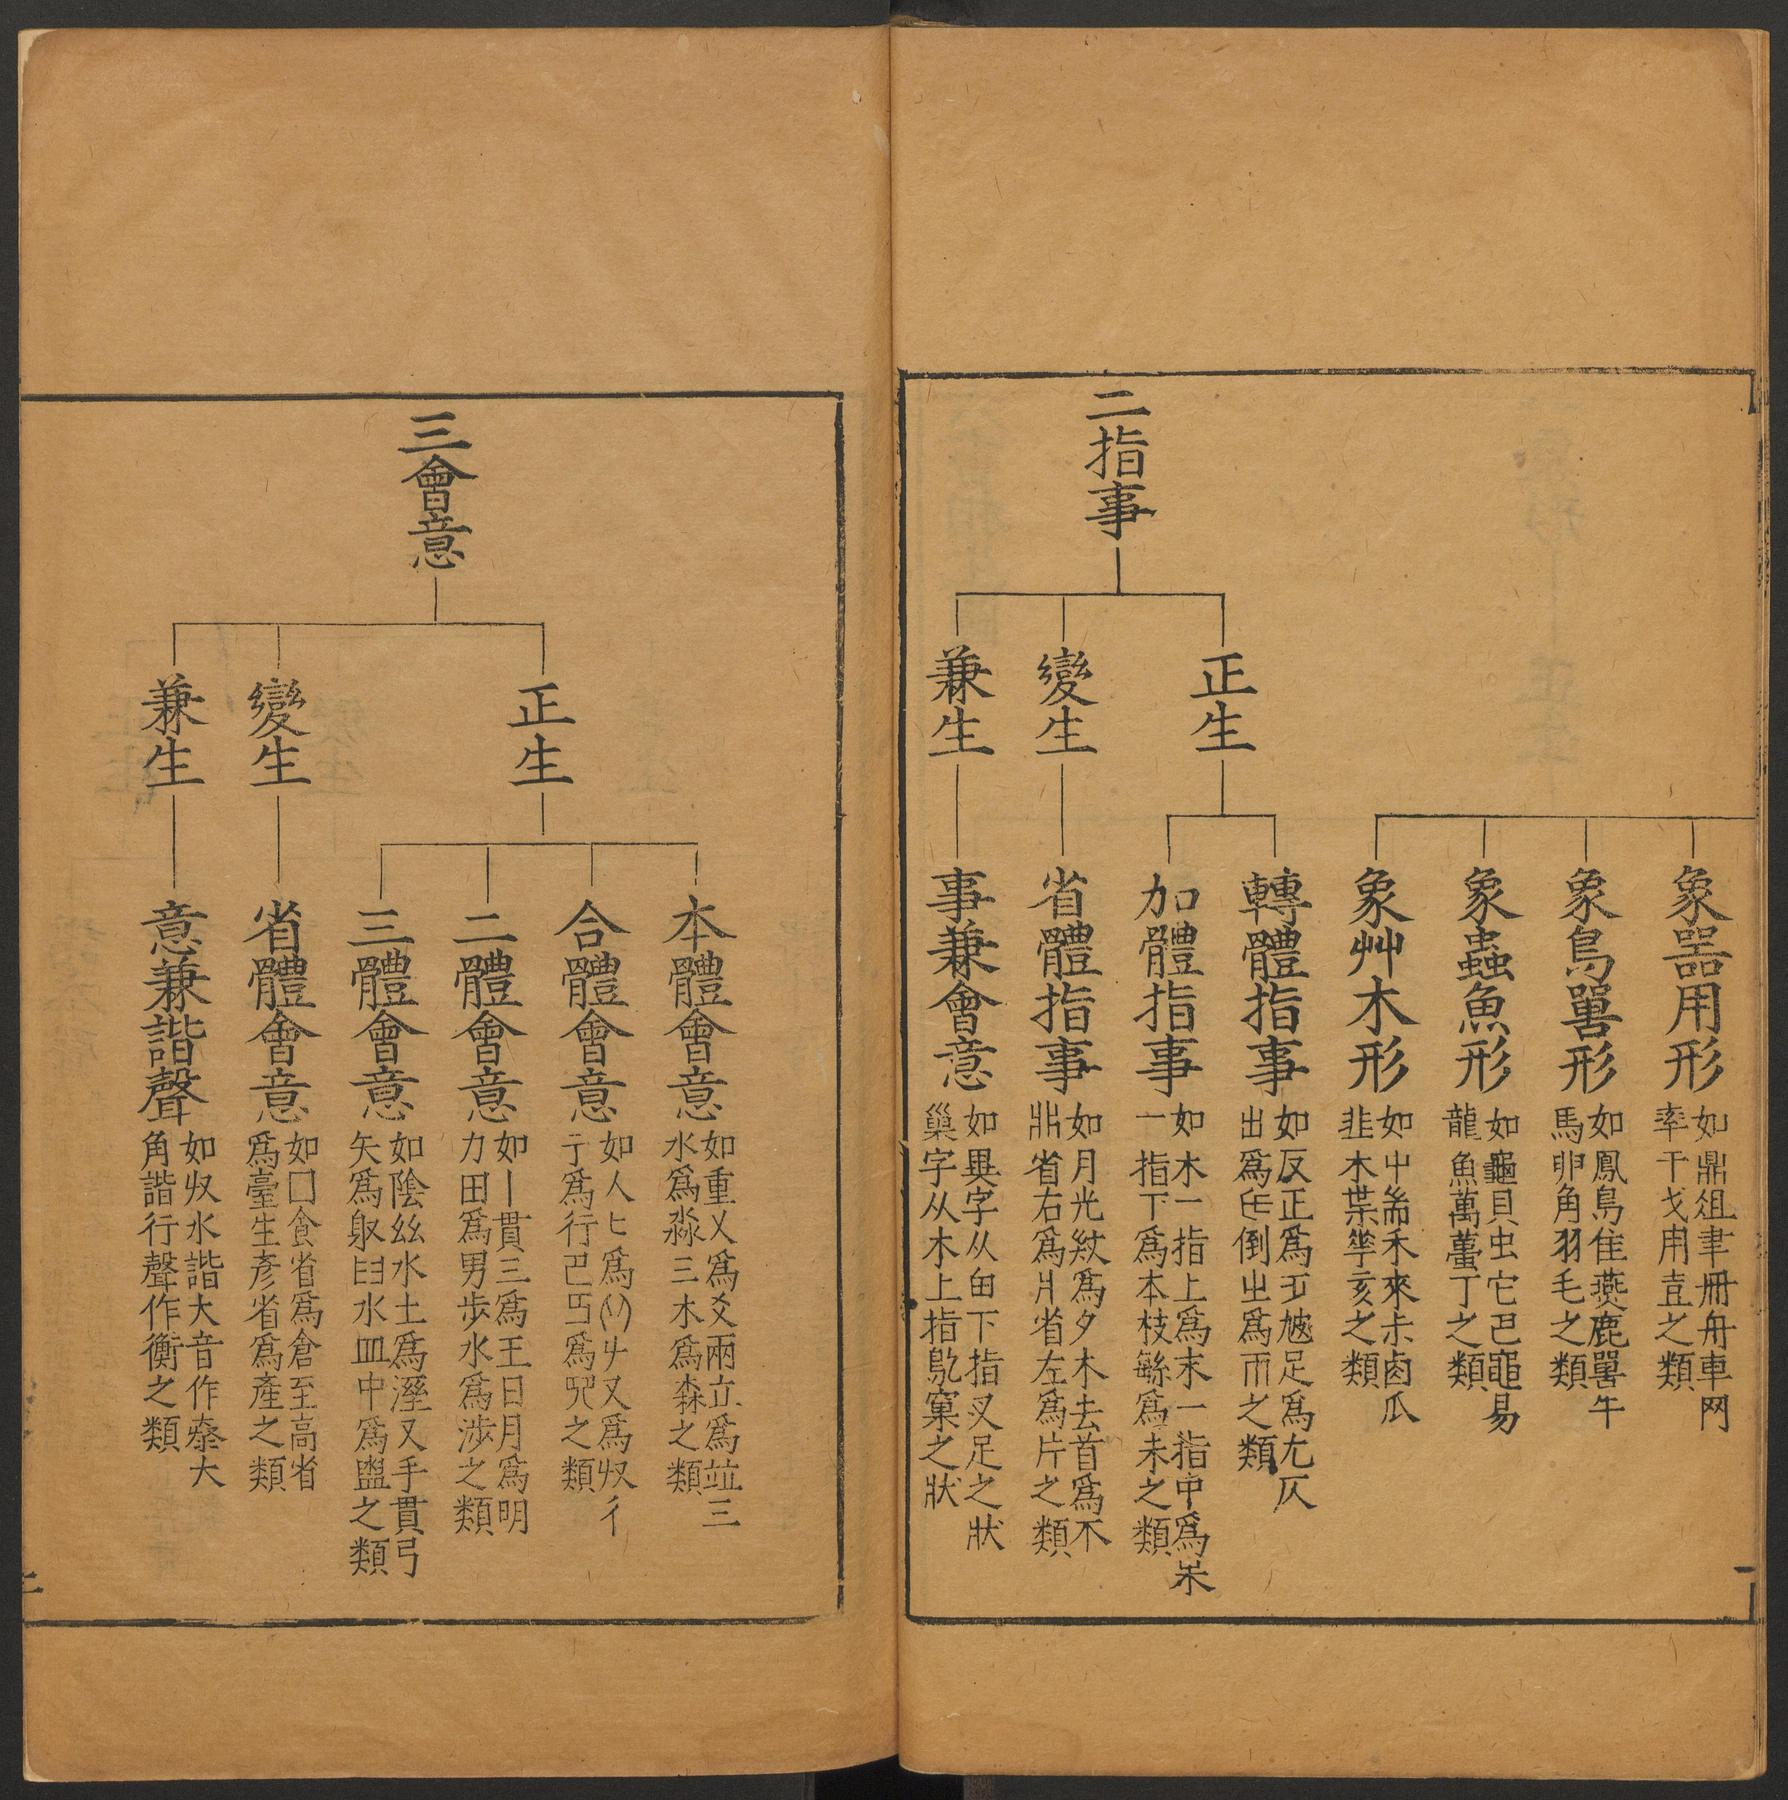 象器用形
如鼎俎聿冊舟車网
率干戈甫壴之類
象鳥嘼形
如鳳鳥隹燕鹿嘼牛
馬卵角羽毛之類
象蟲魚形
如龜貝虫它巴黽易
龍魚萬蠆丁之類
象艸木形
如屮耑禾來尗鹵瓜
韭木葉𠌶亥之類
二指事
正生
轉體指事
如反正為𠄏尬足為尢仄
出為𠚖倒㞢為帀之類
加體指事
如木一指上為末一指中為朱
一指下為本枝緐為未之類
變生
省體指事
如月光紋為夕木去首為不
鼎省右為爿省左為片之類
兼生
事兼會意
如畀字从甶下指叉足之狀
巢字从木上指鳥窠之狀
三會意
正生
本體會意
如重乂為爻兩立為竝三
水為淼三木為森之類
合體會意
如人匕為 屮又為収彳
亍為行巴丏為 之類
二體會意
如丨貫三為王日月為明
力田為男步水為涉之類
三體會意
如陰絲水土為溼又手貫弓
矢為䠶𦥑水皿中為盥之類
變生
省體會意
如囗食省為倉至高省
為臺生彥省為產之類
兼生
意兼諧聲
如収水諧大音作泰大
角諧行聲作衡之類